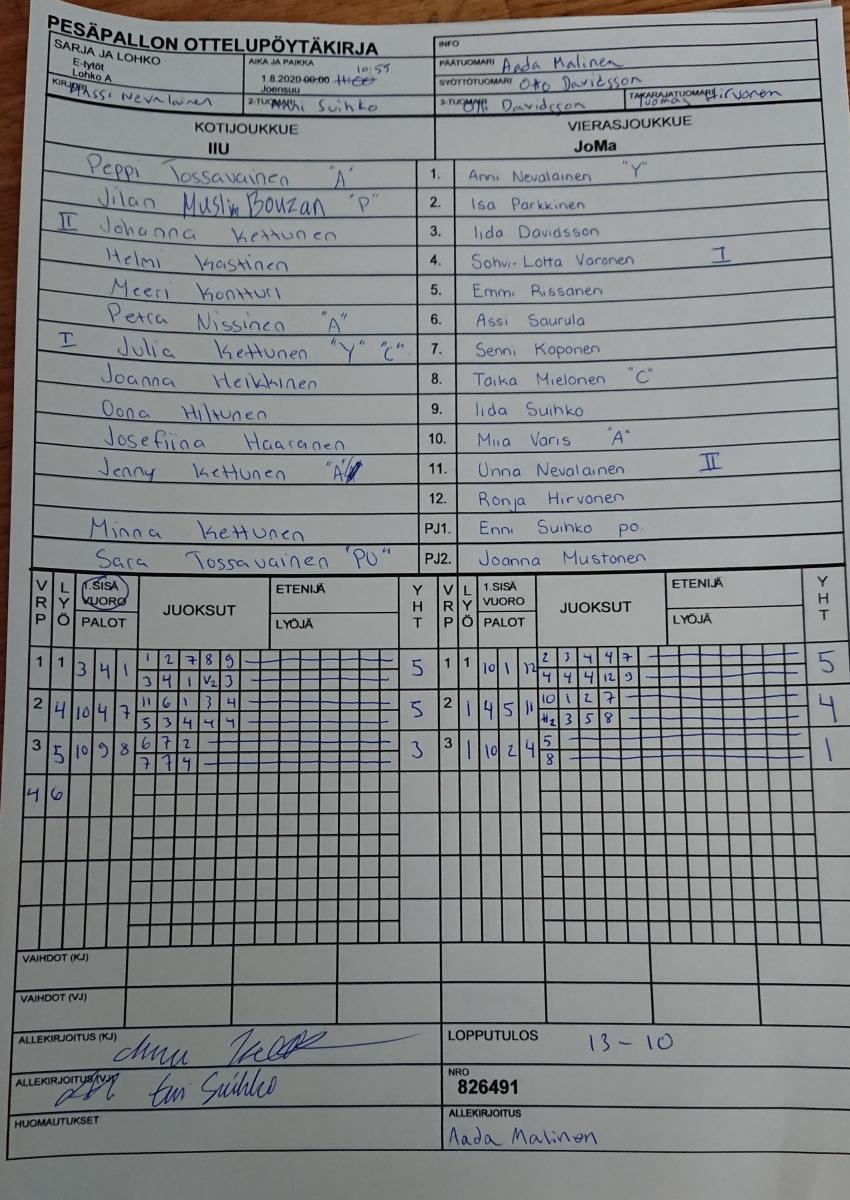 PESÄPALLON OTTELUPÖYTÄKIRJA
SARJA JA LOHKO
E-tytöt
Lohko A
KIRJURI Anssi Nevalainen
AIKA JA PAIKKA
10:55
1.8.2020 00:00 11:00
Joensuu
2-TUOMARI Anni Suihko
INFO
PÄÄTUOMARI Aada Malinen
SYÖTTÖTUOMARI Otto Davidsson
3-TUOMARI Davidsson TAKARAJATUOMARI Tuomas Hirvonen
KOTIJOUKKUE VIERASJOUKKUE
IIU JoMa
Peppi Tossavainen "A" 1. Anni Nevalainen "Y"
Jilan Muslim Bouzan "P" 2. Isa Parkkinen
II Johanna Kettunen 3. Iida Davidsson
Helmi Kastinen 4. Sohvi-Lotta Varonen I
Meeri Kontturi 5. Emmi Rissanen
Petra Nissinen "A" 6. Assi Saurula
I Julia Kettunen "Y" "C" 7. Senni Koponen
Joanna Heikkinen 8. Taika Mielonen "C"
Oona Hiltunen 9. Iida Suihko
Josefiina Haaranen 10. Miia Varis "A"
Jenny Kettunen "A" 11. Unna Nevalainen II
12. Ronja Hirvonen
Minna Kettunen PJ1. Enni Suihko po.
Sara Tossavainen "PO" PJ2. Joanna Mustonen
VRP LYÖ 1.SISÄ VUORO PALOT JUOKSUT ETENIJÄ LYÖJÄ YHT VRP LYÖ 1.SISÄ VUORO PALOT JUOKSUT ETENIJÄ LYÖJÄ YHT
1 1 3 4 1 1 2 7 8 9 5 1 1 10 1 12 2 3 4 4 7 5
3 4 1 V2 3 4 4 4 12 9
2 4 10 4 7 11 6 1 3 4 5 2 1 4 5 11 10 1 2 7 4
5 3 4 4 4 2 3 5 8
3 5 10 9 8 6 7 2 3 3 1 10 2 4 5 1
7 7 4 8
4 6
VAIHDOT (KJ)
VAIHDOT (VJ)
ALLEKIRJOITUS (KJ)
LOPPUTULOS 13-10
ALLEKIRJOITUS (VJ) Suihko
NRO
826491
HUOMAUTUKSET
ALLEKIRJOITUS
Aada Malinen